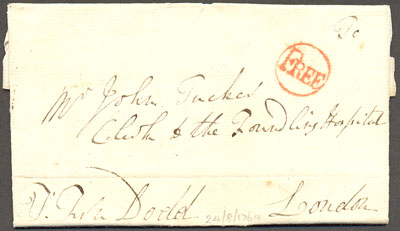 To
FREE
Mr John Tucker
Clerk to the Foundling Hospital
London
Dodd
24/8/1764